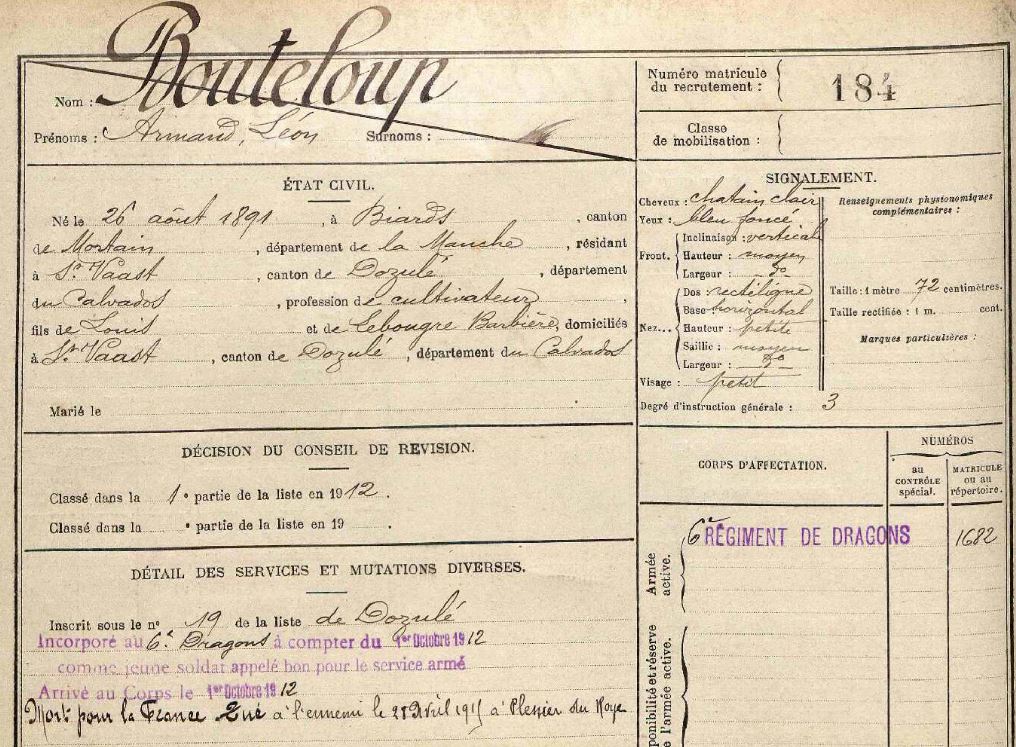 Nom : Bouteloup
Prénoms : Armand, Léon Surnoms :
Numéro matricule du recrutement : 184
Classe de mobilisation :
ÉTAT CIVIL.
Né le 26 août 1891, à Biards, canton
de Mortain, département de la Manche, résidant
à St. Vaast, canton de Dozulé, département
du Calvados, profession de cultivateur,
fils de Louis et de Lebougre Barbière, domiciliés
à St. Vaast, canton de Dozulé, département du Calvados
Marié le
SIGNALEMENT.
Cheveux : chatain clair
Yeux : bleu foncé
Front. Inclinaison : vertical
Hauteur : moyen
Largeur : do
Nez... Dos : rectiligne
Base : horizontal
Hauteur : petite
Saillie : moyen
Largeur : do
Visage : petit
Renseignements physionomiques
complémentaires :
Taille : 1 mètre 72 centimètres.
Taille rectifiée : 1 m. cent.
Marques particulières :
Degré d'instruction générale : 3
DÉCISION DU CONSEIL DE REVISION.
Classé dans la 1e partie de la liste en 1912.
Classé dans la e partie de la liste en 19 .
DÉTAIL DES SERVICES ET MUTATIONS DIVERSES.
Inscrit sous le no 19 de la liste de Dozulé
Incorporé au 6e Dragons à compter du 1er Octobre 1912
comme jeune soldat appelé bon pour le service armé
Arrivé au Corps le 1er Octobre 1912
Mort pour la France Tué à l'ennemi le Avril 1915 à Plessier du Roye
CORPS D'AFFECTATION.
NUMÉROS
au CONTRÔLE spécial.
MATRICULE ou au répertoire.
Armée active.
6e RÉGIMENT DE DRAGONS 1682
ponibilité et réserve
e l'armée active.